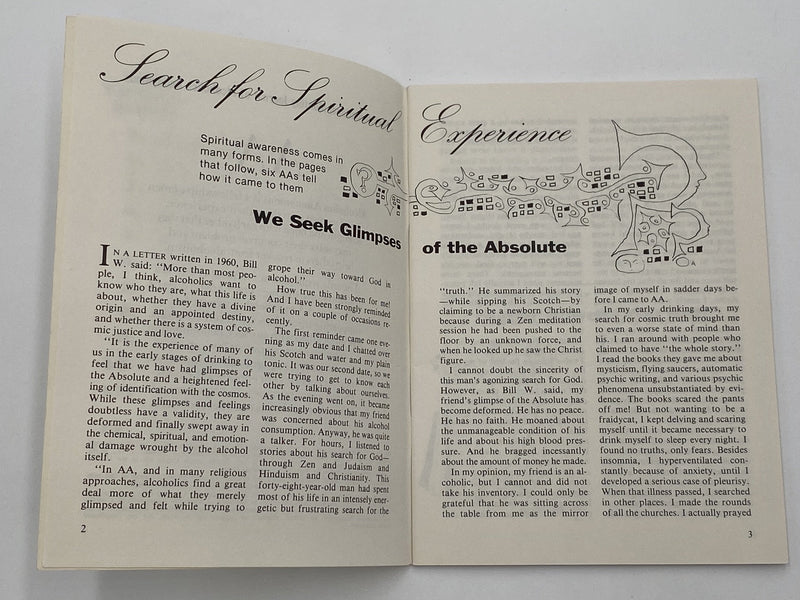 Search for Spiritual
Spiritual awareness comes in
many forms. In the pages
that follow, six AAs tell
how it came to them
We Seek Glimpses
IN A LETTER written in 1960, Bill
W. said: "More than most peo-
ple, I think, alcoholics want to
know who they are, what this life is
about, whether they have a divine
origin and an appointed destiny,
and whether there is a system of cos-
mic justice and love.
"It is the experience of many of
us in the early stages of drinking to
feel that we have had glimpses of
the Absolute and a heightened feel-
ing of identification with the cosmos.
While these glimpses and feelings
doubtless have a validity, they are
deformed and finally swept away in
the chemical, spiritual, and emotion-
al damage wrought by the alcohol
itself.
"In AA, and in many religious
approaches, alcoholics find a great
deal more of what they merely
glimpsed and felt while trying to
grope their way toward God in
alcohol."
How true this has been for me!
And I have been strongly reminded
of it on a couple of occasions re-
cently.
The first reminder came one eve-
ning as my date and I chatted over
his Scotch and water and my plain
tonic. It was our second date, so we
were trying to get to know each
other by talking about ourselves.
As the evening went on, it became
increasingly obvious that my friend
was concerned about his alcohol
consumption. Anyway, he was quite
a talker. For hours, I listened to
stories about his search for God—
through Zen and Judaism and
Hinduism and Christianity. This
forty-eight-year-old man had spent
most of his life in an intensely ener-
getic but frustrating search for the
2
Experience
of the Absolute
"truth." He summarized his story
—while sipping his Scotch—by
claiming to be a newborn Christian
because during a Zen meditation
session he had been pushed to the
floor by an unknown force, and
when he looked up he saw the Christ
figure.
I cannot doubt the sincerity of
this man's agonizing search for God.
However, as Bill W. said, my
friend's glimpse of the Absolute has
become deformed. He has no peace.
He has no faith. He moaned about
the unmanageable condition of his
life and about his high blood pres-
sure. And he bragged incessantly
about the amount of money he made.
In my opinion, my friend is an al-
coholic, but I cannot and did not
take his inventory. I could only be
grateful that he was sitting across
the table from me as the mirror
image of myself in sadder days be-
fore I came to AA.
In my early drinking days, my
search for cosmic truth brought me
to even a worse state of mind than
his. I ran around with people who
claimed to have "the whole story."
I read the books they gave me about
mysticism, flying saucers, automatic
psychic writing, and various psychic
phenomena unsubstantiated by evi-
dence. The books scared the pants
off me! But not wanting to be a
fraidycat, I kept delving and scaring
myself until it became necessary to
drink myself to sleep every night. I
found no truths, only fears. Besides
insomnia, I hyperventilated con-
stantly because of anxiety, until I
developed a serious case of pleurisy.
When that illness passed, I searched
in other places. I made the rounds
of all the churches. I actually prayed
3